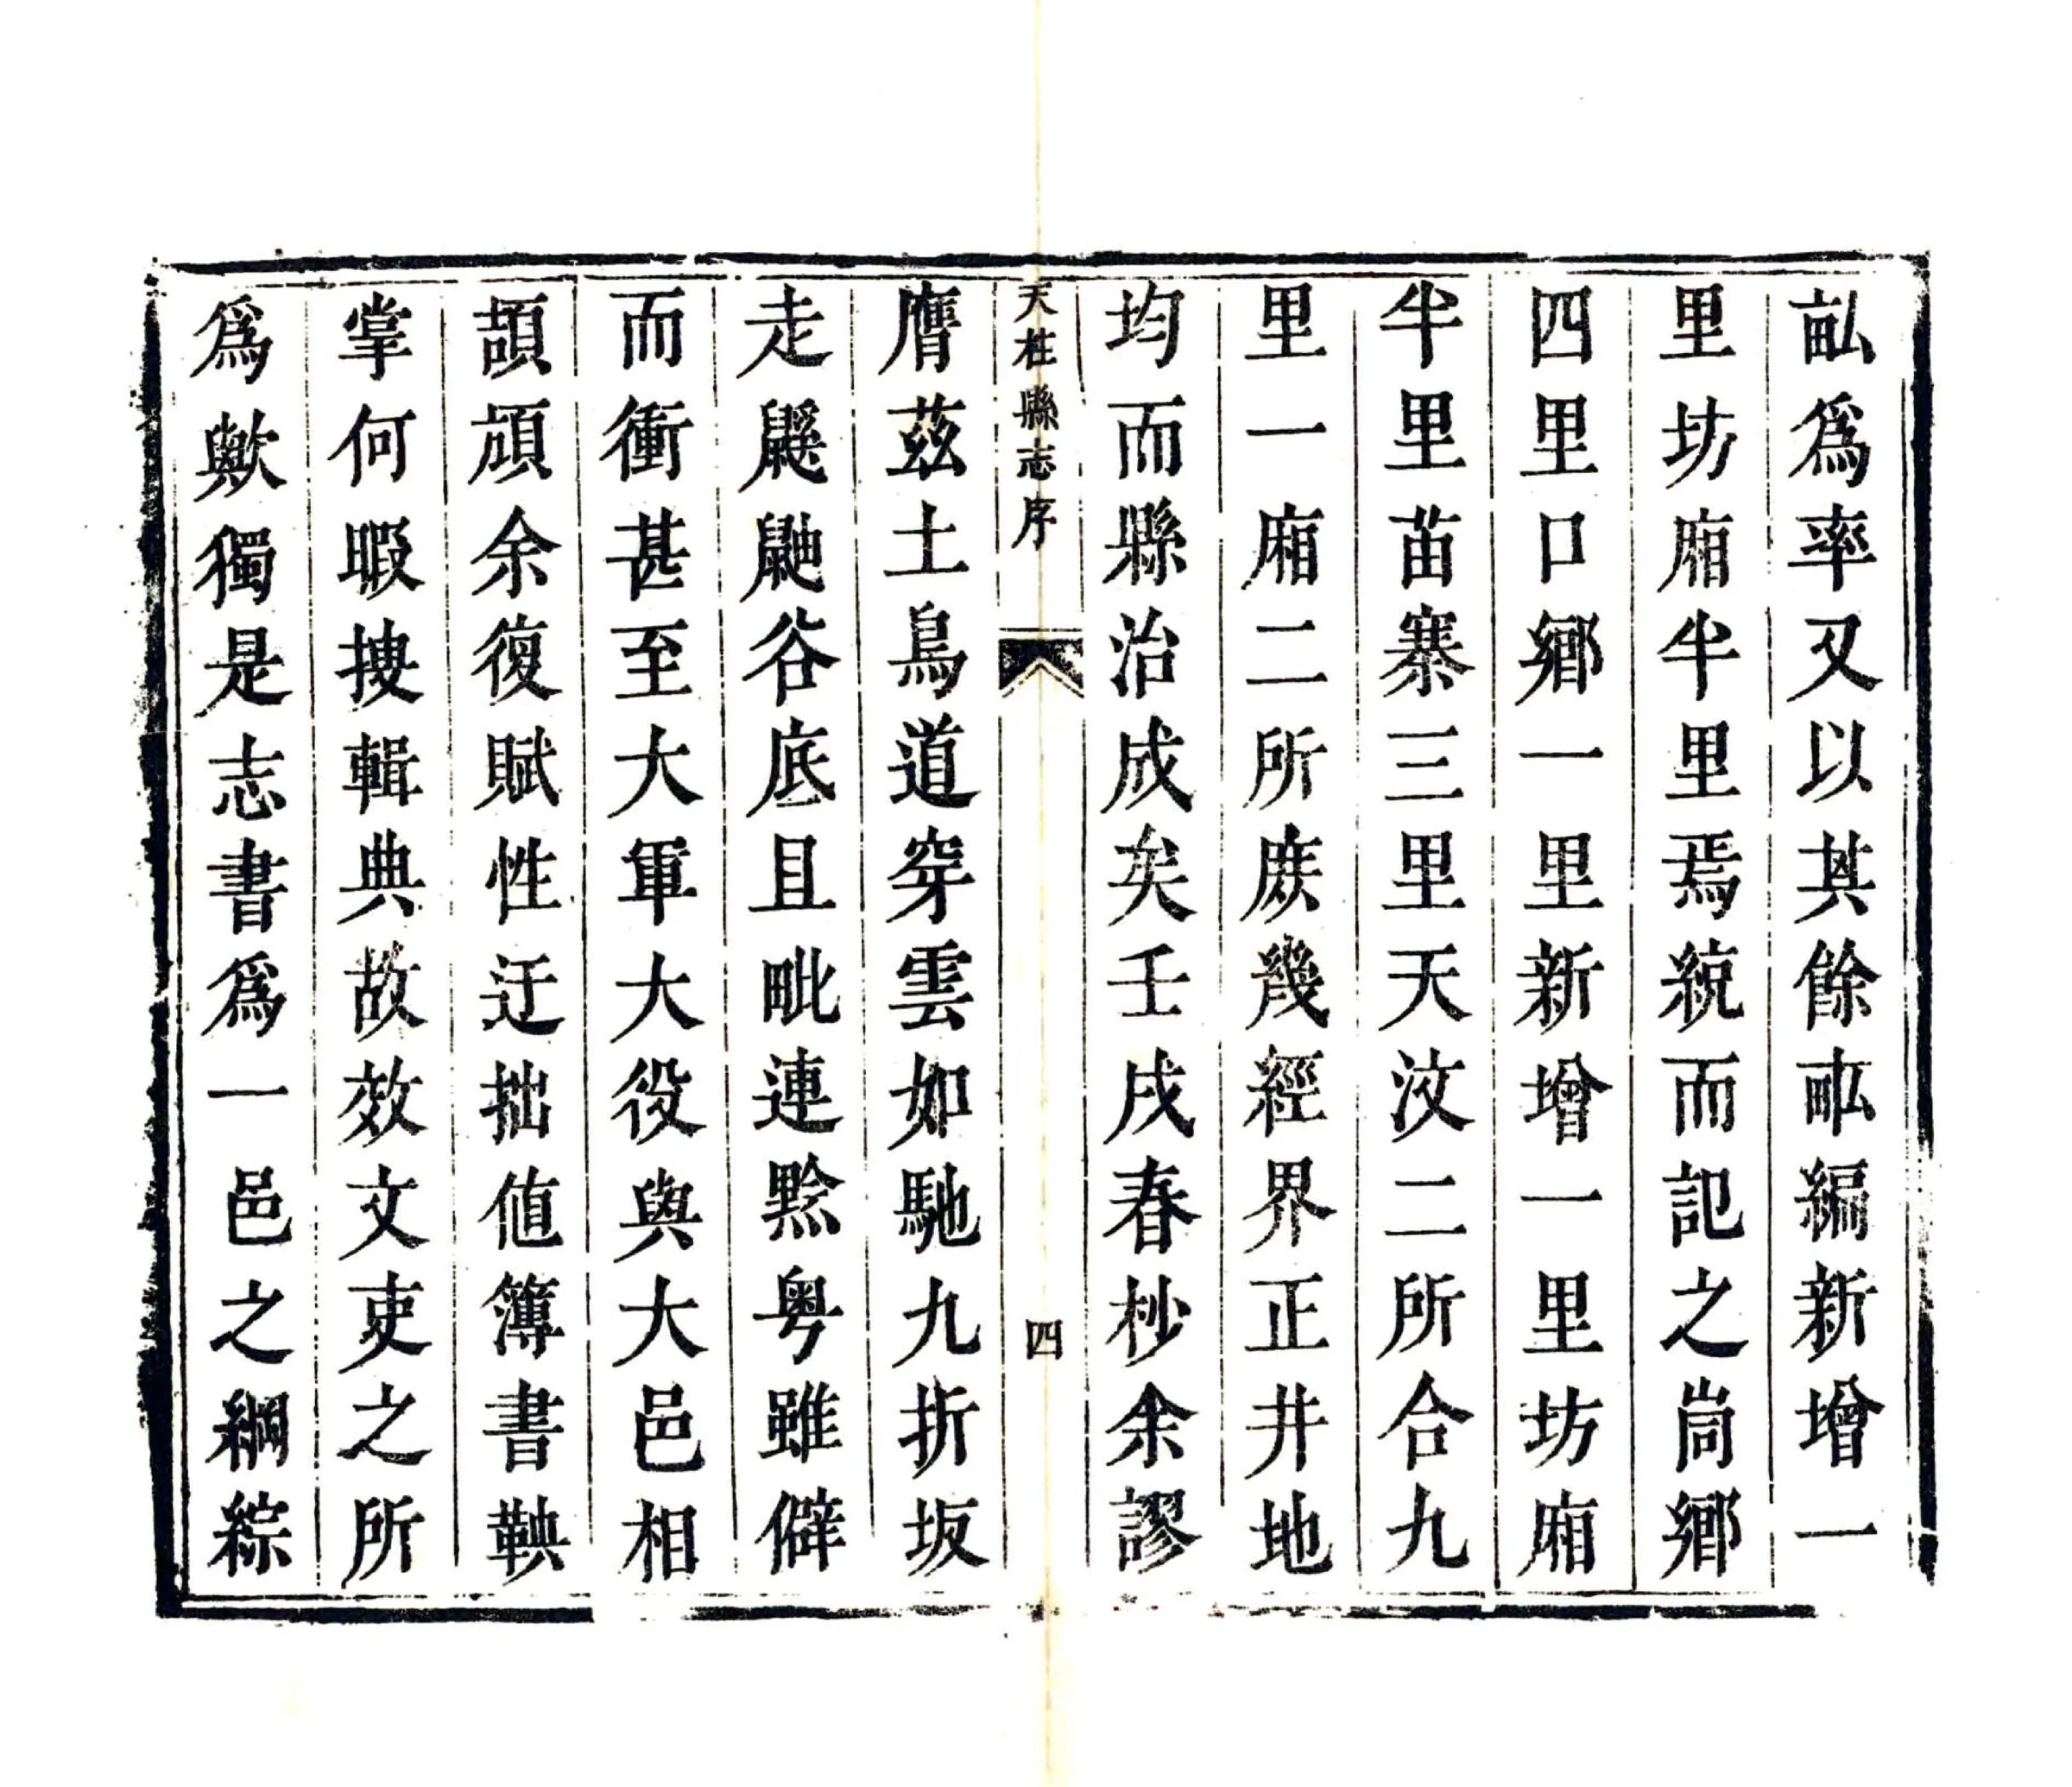 畆爲率又以其餘畆編新增一
里坊廂半里焉統而記之峝鄉
四里口鄉一里新增一里坊廂
半里苗寨三里天汶二所合九
里一廂二所庻幾經界正井地
均而縣治成矣壬戌春杪余謬
天柱縣志序
四
膺茲土鳥道穿雲如馳九折坂
走鼷鼬谷底且毗連黔粤雖僻
而衝甚至大軍大役與大邑相
頡頏余復賦性迂拙值簿書鞅
掌何暇搜輯典故效文吏之所
爲歟獨是志書爲一邑之綱綜